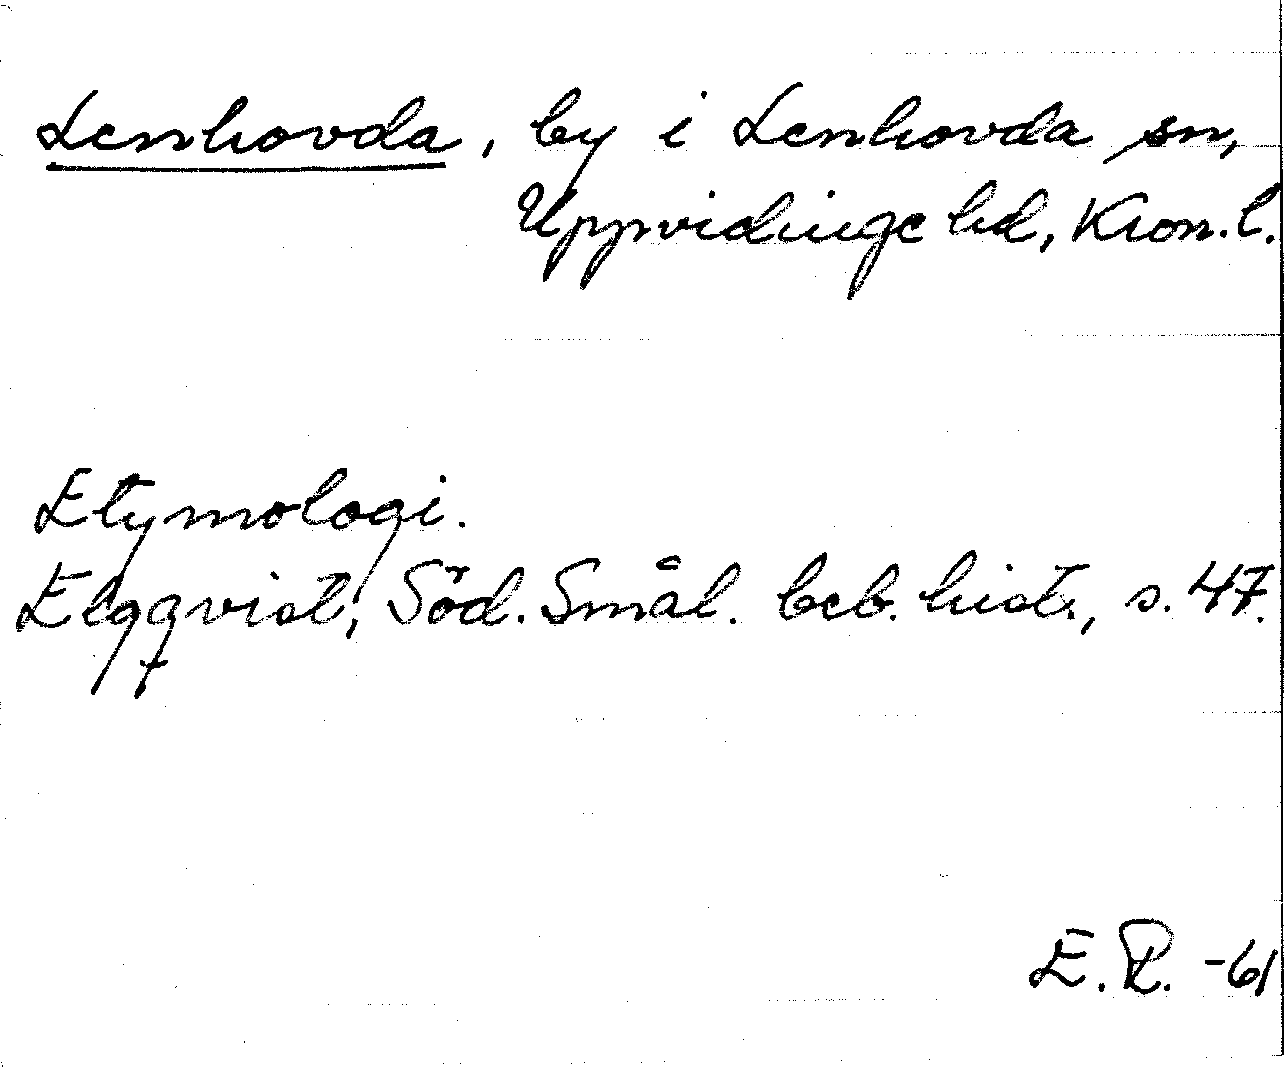 Lenhovda, by i Lenhovda sn,
Uppvidinge hd, Kron. l.
Etymologi.
Elgqvist, Söd. Smål. beb. hist., s. 47.
E. R. -61